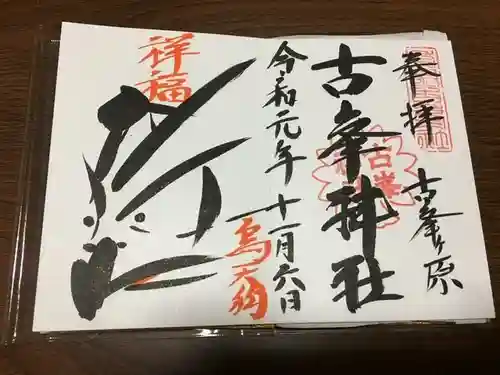 奉拝
古峯ヶ原
古峯神社
令和元年十一月六日
烏天狗
祥福